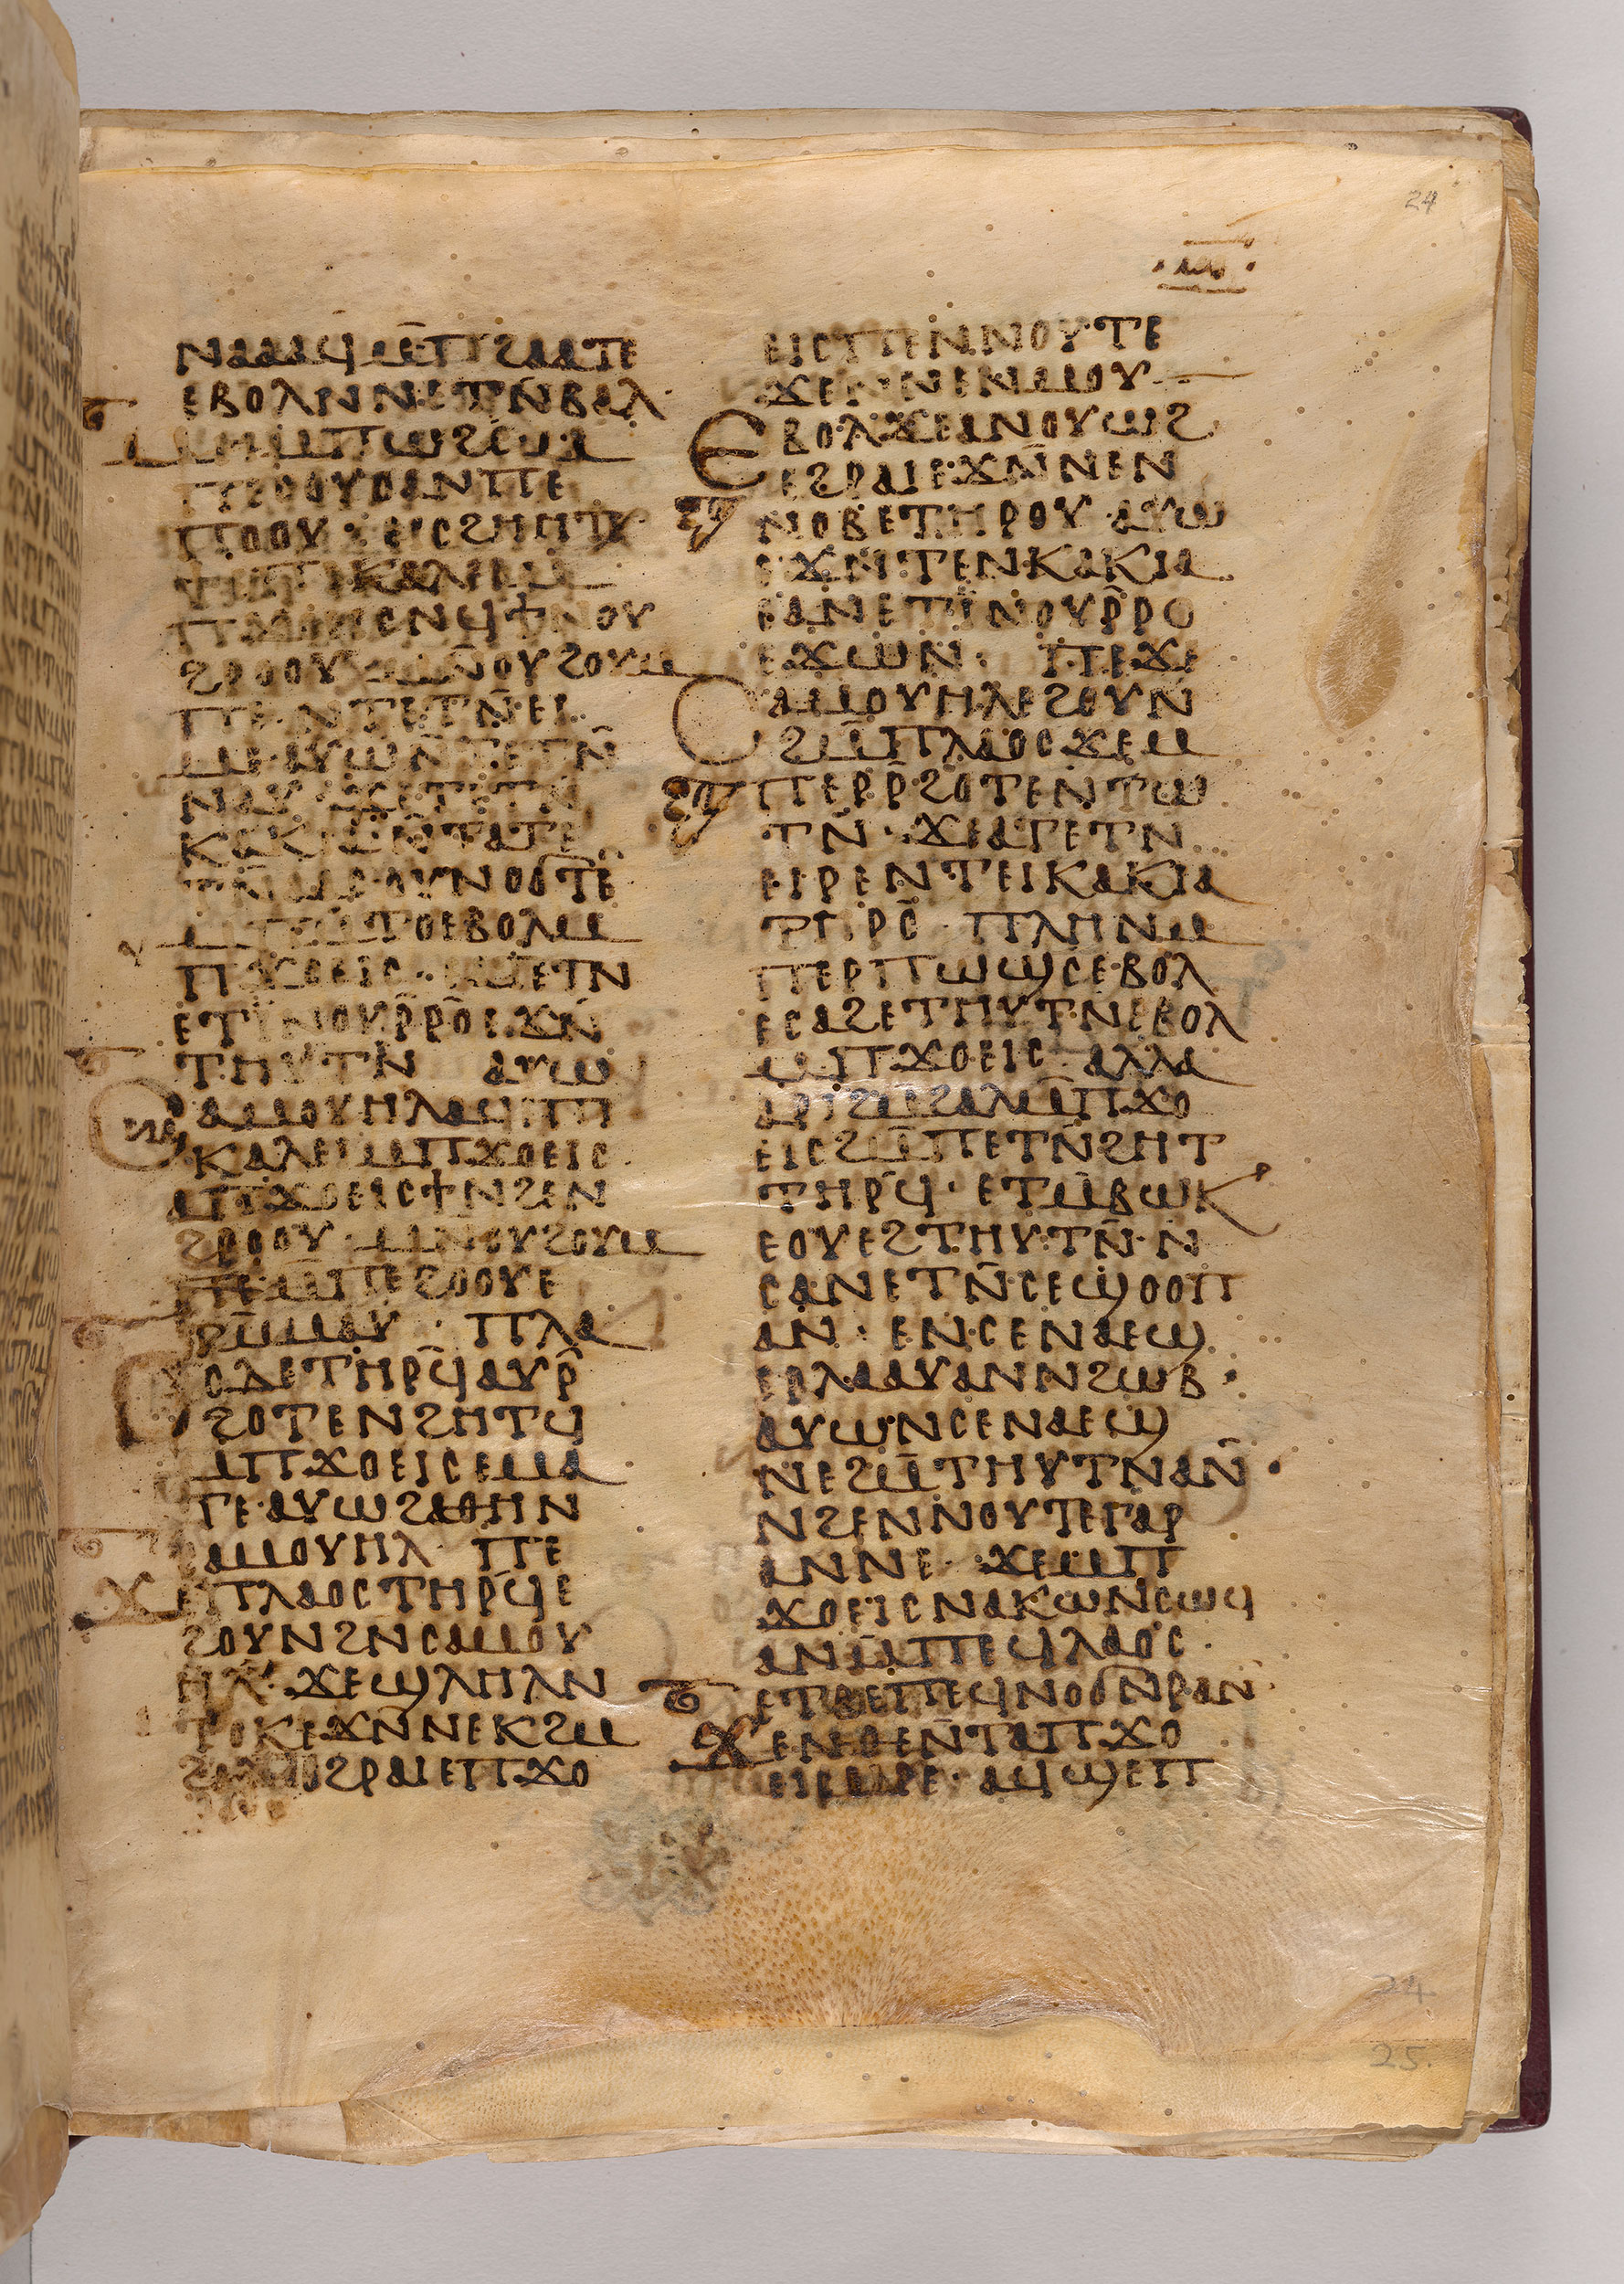 24
ⲛⲁⲁⲁϥ ⲙ̄ⲡϩⲙⲁⲧⲉ
ⲉⲃⲟⲗ ⲛⲛⲉⲧⲛ̄ⲃⲁⲗ·
ⲙⲏ ⲙⲡⲱϩ̄ⲥ ⲙⲡⲉ
ϩⲟⲟⲩ ⲁⲛ ⲡⲉ
ⲡⲟⲟⲩ· ⲉⲓⲥϩⲏⲏⲧⲉ
ϯⲛⲁⲉⲡⲓⲕⲁⲗⲉⲓ ⲙ
ⲡϫⲟⲉⲓⲥ ⲛϥϯ ⲛⲟⲩ
ϩⲣⲟⲟⲩ ⲙⲛ̄ ⲟⲩϩⲟⲩⲙ
ⲡⲉ· ⲛⲧⲉⲧⲛ̄ⲉⲓ
ⲙⲉ ⲁⲩⲱ ⲛ̄ⲧⲉⲧⲛ̄
ⲛⲁⲩ· ϫⲉ ⲧⲉⲧⲛ
ⲕⲁⲕⲓⲁ ⲛ̄ⲧⲁⲧⲉ
ⲧⲛ̄ⲁⲁⲥ ⲟⲩⲛⲟϭ ⲧⲉ
ⲙⲡⲉⲙⲧⲟ ⲉⲃⲟⲗ ⲙ
ⲡϫⲟⲉⲓⲥ·
ⲉⲧⲓ ⲛⲟⲩⲣ̄ⲣ̄ⲟ ⲉϫⲛ̄
ⲧⲏⲩⲧⲛ ⲁⲩⲱ
ⲥⲁⲙⲟⲩⲏⲗ ⲁϥⲉⲡⲓ
ⲕⲁⲗⲉⲓ ⲙⲡϫⲟⲉⲓⲥ
ⲁⲡϫⲟⲉⲓⲥ ϯ ⲛϩⲉⲛ
ϩⲣⲟⲟⲩ ⲙⲛ ⲟⲩϩⲟⲩⲙ
ⲡⲉ ⲙ̄ⲡⲉϩⲟⲟⲩ ⲉ
ⲧⲙ̄ⲙⲁⲩ· ⲡⲗⲁ
ⲟⲥ ⲇⲉ ⲧⲏⲣϥ̄ ⲁⲩⲣ̄
ϩⲟⲧⲉ ⲛϩⲏⲧϥ
ⲙⲡϫⲟⲉⲓⲥ ⲉⲙⲁ
ⲧⲉ· ⲁⲩⲱ ϩⲁⲑⲏ ⲛ
ⲥⲁⲙⲟⲩⲏⲗ· ⲡⲉ
ϫⲉ ⲡⲗⲁⲟⲥ ⲧⲏⲣϥ̄ ⲉ
ϩⲟⲩⲛ ϩⲛ ⲥⲁⲙⲟⲩ
ⲏⲗ· ϫⲉ ϣⲗⲏⲗ ⲛ
ⲧⲟⲕ ⲉϫⲛ̄ ⲛⲉⲕϩⲙ
ϩⲁⲗ ⲉϩⲣⲁⲓ ⲉⲡϫⲟ
ⲉⲓⲥ ⲡⲉⲛⲛⲟⲩⲧⲉ
ϫⲉ ⲛⲛⲉⲛⲙⲟⲩ
ⲉⲃⲟⲗ ϫⲉ ⲁⲛⲟⲩⲱϩ
ⲉϩⲣⲁⲓ ⲉϫⲛ̄ ⲛⲉⲛ
ⲛⲟⲃⲉ ⲧⲏⲣⲟⲩ· ⲁⲩⲱ
ⲉϫⲛ̄ ⲧⲉⲛⲕⲁⲕⲓⲁ
ⲉⲁⲛⲉⲧⲓ ⲛⲟⲩⲣ̄ⲣⲟ
ⲉϫⲱⲛ· ⲡⲉϫⲉ
ⲥⲁⲙⲟⲩⲏⲗ ⲉϩⲟⲩⲛ
ϩⲙ̄ ⲡⲗⲁⲟⲥ ϫⲉ ⲙ
ⲡⲉⲣⲣ̄ϩⲟⲧⲉ ⲛⲧⲱ
ⲧⲛ̄· ϫⲉ ⲁⲧⲉⲧⲛ
ⲉⲓⲣⲉ ⲛⲧⲉⲓⲕⲁⲕⲓⲁ
ⲧⲏⲣⲥ̄ ⲡⲗⲏⲛ ⲙ
ⲡⲉⲣⲡⲱϣⲥ ⲉⲃⲟⲗ
ⲉⲥⲁϩⲉⲧⲏⲩⲧⲛ ⲉⲃⲟⲗ
ⲙⲡϫⲟⲉⲓⲥ ⲁⲗⲗⲁ
ⲁⲣⲓϩⲙϩⲁⲗ ⲙ̄ⲡϫⲟ
ⲉⲓⲥ ϩⲙ̄ ⲡⲉⲧⲛ̄ϩⲏⲧ
ⲧⲏⲣϥ̄· ⲉⲧⲙ̄ⲃⲱⲕ
ⲉⲟⲩⲉϩⲧⲏⲩⲧⲛ̄ ⲛ
ⲥⲁ ⲛⲉⲧⲛ̄ⲥⲉϣⲟⲟⲡ
ⲁⲛ· ⲉⲛⲥⲉⲛⲁⲉϣ
ⲉⲣⲗⲁⲁⲩ ⲁⲛ ⲛϩⲱⲃ·
ⲁⲩⲱ ⲛⲥⲉⲛⲁⲉϣ
ⲛⲉϩⲙ̄ⲧⲏⲩⲧⲛ ⲁⲛ̄·
ⲛϩⲉⲛⲛⲟⲩⲧⲉ ⲅⲁⲣ
ⲁⲛ ⲛⲉ· ϫⲉ ⲙⲡ
ϫⲟⲉⲓⲥ ⲛⲁⲕⲱ ⲛⲥⲱϥ
ⲁⲛ ⲙ̄ⲡⲉϥⲗⲁⲟⲥ·
ⲉⲧⲃⲉ ⲡⲉϥⲛⲟϭ ⲛⲣⲁⲛ
ϫⲉ ⲛⲑⲉ ⲛ̄ⲧⲁ ⲡϫⲟ
ⲉⲓⲥ ⲁⲁⲣⲉ· ⲁϥϣⲉⲡ
24
25.